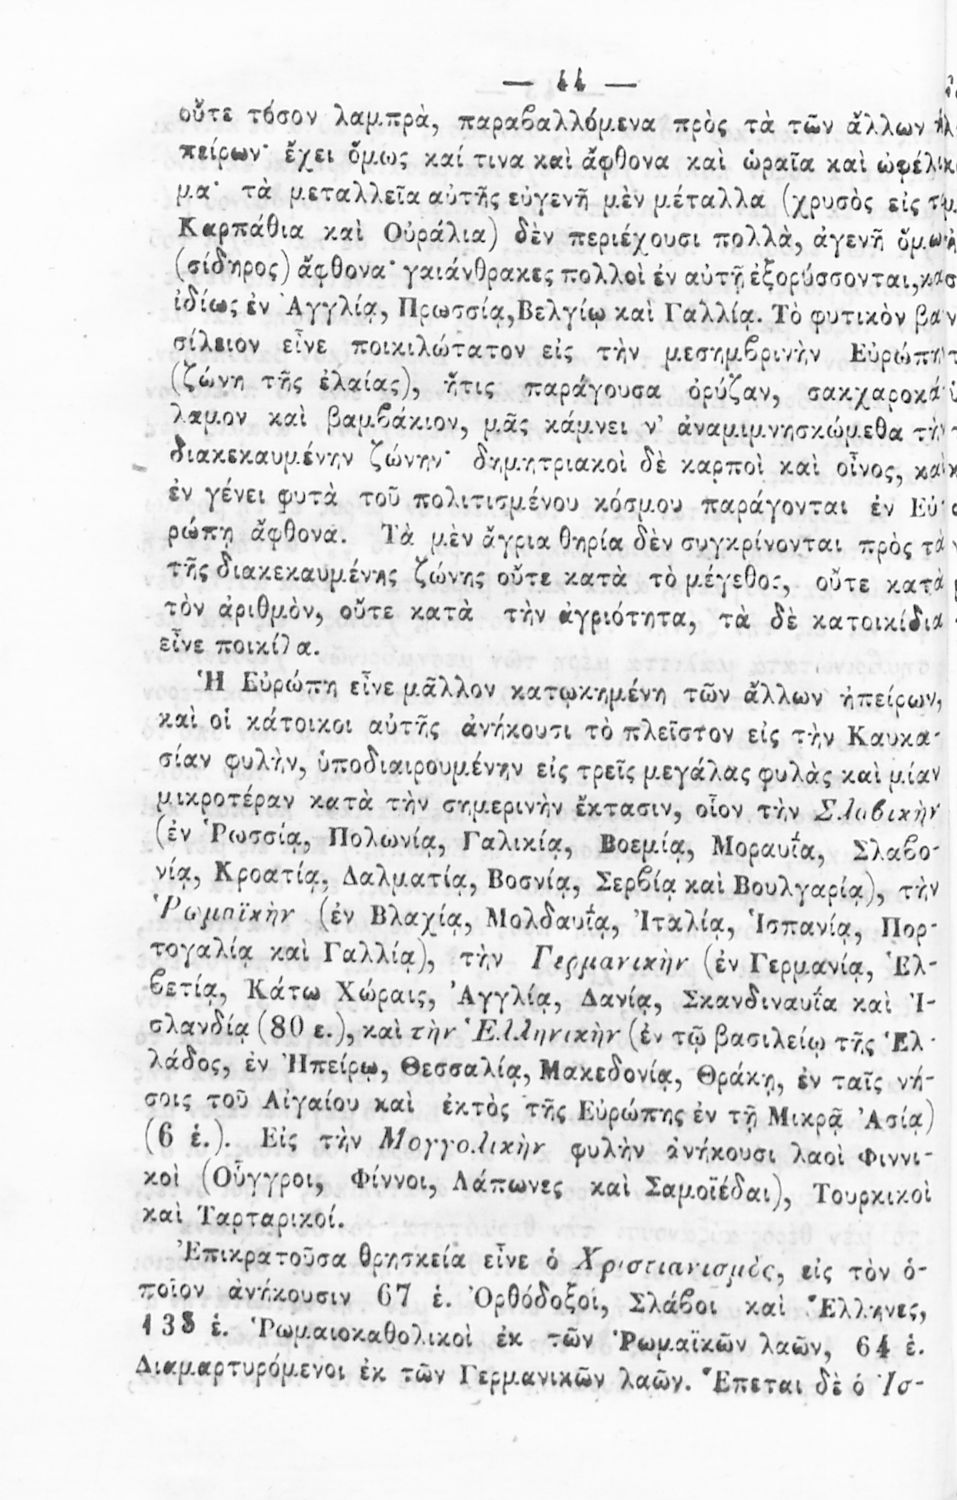 — 44 —
οὔτε τόσον λαμπρὰ, παραβαλλόμενα πρὸς τὰ τῶν ἄλλων ἠ-
πείρων· ἔχει ὅμως καί τινα καὶ ἄφθονα καὶ ὡραῖα καὶ ὠφέλι-
μα· τὰ μεταλλεῖα αὐτῆς εὐγενῆ μὲν μέταλλα (χρυσὸς εἰς τὰ
Καρπάθια καὶ Οὐράλια) δὲν περιέχουσι πολλὰ, ἀγενῆ ὅμως
(σίδηρος) ἄφθονα· γαιάνθρακες πολλοὶ ἐν αὐτῇ ἐξορύσσονται, καὶ
ἰδίως ἐν Ἀγγλίᾳ, Πρωσσίᾳ, Βελγίῳ καὶ Γαλλίᾳ. Τὸ φυτικὸν βα-
σίλειον εἶνε ποικιλώτατον εἰς τὴν μεσημβρινὴν Εὐρώπην
(ζώνη τῆς ἐλαίας), ἥτις παράγουσα ὀρύζαν, σακχαροκά-
λαμον καὶ βαμβάκιον, μᾶς κάμνει ν' ἀναμιμνησκώμεθα τὴν
διακεκαυμένην ζώνην· δημητριακοὶ δὲ καρποὶ καὶ οἶνος, καὶ
ἐν γένει φυτὰ τοῦ πολιτισμένου κόσμου παράγονται ἐν Εὐ-
ρώπῃ ἄφθονα. Τὰ μὲν ἄγρια θηρία δὲν συγκρίνονται πρὸς τὰ
τῆς διακεκαυμένης ζώνης οὔτε κατὰ τὸ μέγεθος, οὔτε κατὰ
τὸν ἀριθμὸν, οὔτε κατὰ τὴν ἀγριότητα, τὰ δὲ κατοικίδια
εἶνε ποικίλα.
Ἡ Εὐρώπη εἶνε μᾶλλον κατῳκημένη τῶν ἄλλων ἠπείρων,
καὶ οἱ κάτοικοι αὐτῆς ἀνήκουσι τὸ πλεῖστον εἰς τὴν Καυκα-
σίαν φυλὴν, ὑποδιαιρουμένην εἰς τρεῖς μεγάλας φυλὰς καὶ μίαν
μικροτέραν κατὰ τὴν σημερινὴν ἔκτασιν, οἷον τὴν Σλαβικὴν
(ἐν Ῥωσσίᾳ, Πολωνίᾳ, Γαλικίᾳ, Βοεμίᾳ, Μοραυΐᾳ, Σλαβο-
νίᾳ, Κροατίᾳ, Δαλματίᾳ, Βοσνίᾳ, Σερβίᾳ καὶ Βουλγαρίᾳ), τὴν
Ῥωμαϊκὴν (ἐν Βλαχίᾳ, Μολδαυΐᾳ, Ἰταλίᾳ, Ἱσπανίᾳ, Πορ-
τογαλίᾳ καὶ Γαλλίᾳ), τὴν Γερμανικὴν (ἐν Γερμανίᾳ, Ἑλ-
βετίᾳ, Κάτω Χώραις, Ἀγγλίᾳ, Δανίᾳ, Σκανδιναυΐᾳ καὶ Ἰ-
σλανδίᾳ (80 ε.), καὶ τὴν Ἑλληνικὴν (ἐν τῷ βασιλείῳ τῆς Ἑλ-
λάδος, ἐν Ἠπείρῳ, Θεσσαλίᾳ, Μακεδονίᾳ, Θράκῃ, ἐν ταῖς νή-
σοις τοῦ Αἰγαίου καὶ ἐκτὸς τῆς Εὐρώπης ἐν τῇ Μικρᾷ Ἀσίᾳ)
(6 ἑ.). Εἰς τὴν Μογγολικὴν φυλὴν ἀνήκουσι λαοὶ Φιννι-
κοὶ (Οὗγγροι, Φίννοι, Λάπωνες καὶ Σαμοϊέδαι), Τουρκικοὶ
καὶ Ταρταρικοί.
Ἐπικρατοῦσα θρησκεία εἶνε ὁ Χριστιανισμὸς, εἰς τὸν ὁ-
ποῖον ἀνήκουσιν 67 ἑ. Ὀρθόδοξοι, Σλάβοι καὶ Ἕλληνες,
138 ἑ. Ῥωμαιοκαθολικοὶ ἐκ τῶν Ῥωμαϊκῶν λαῶν, 64 ἑ.
Διαμαρτυρόμενοι ἐκ τῶν Γερμανικῶν λαῶν. Ἕπεται δὲ ὁ Ἰσ-